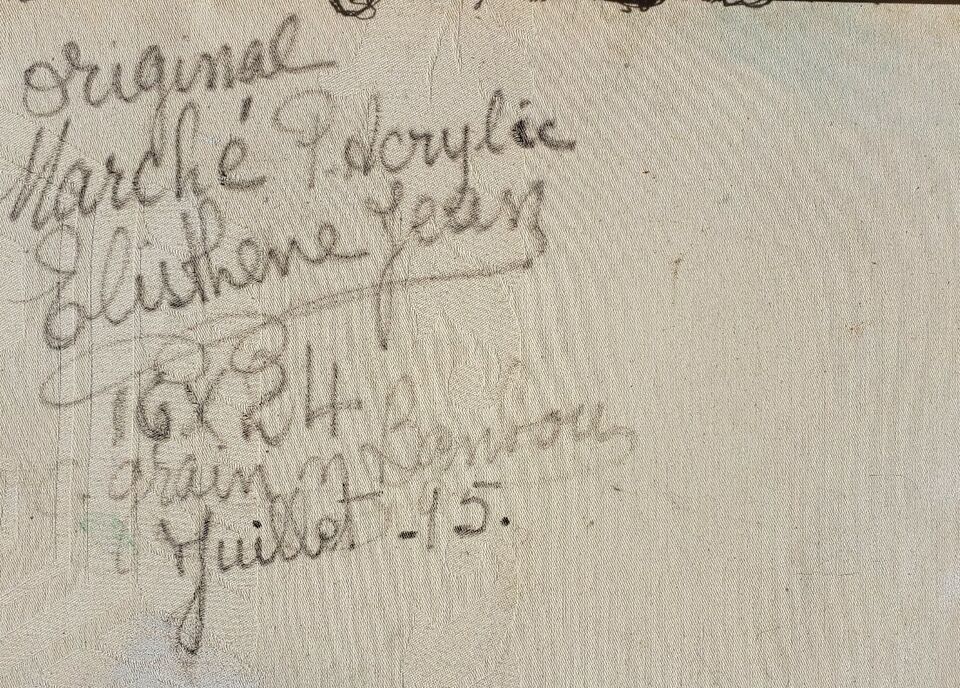 Original
Marché P. Acrylic
Elisthene Jean
16 x 24
Juillet - 15.